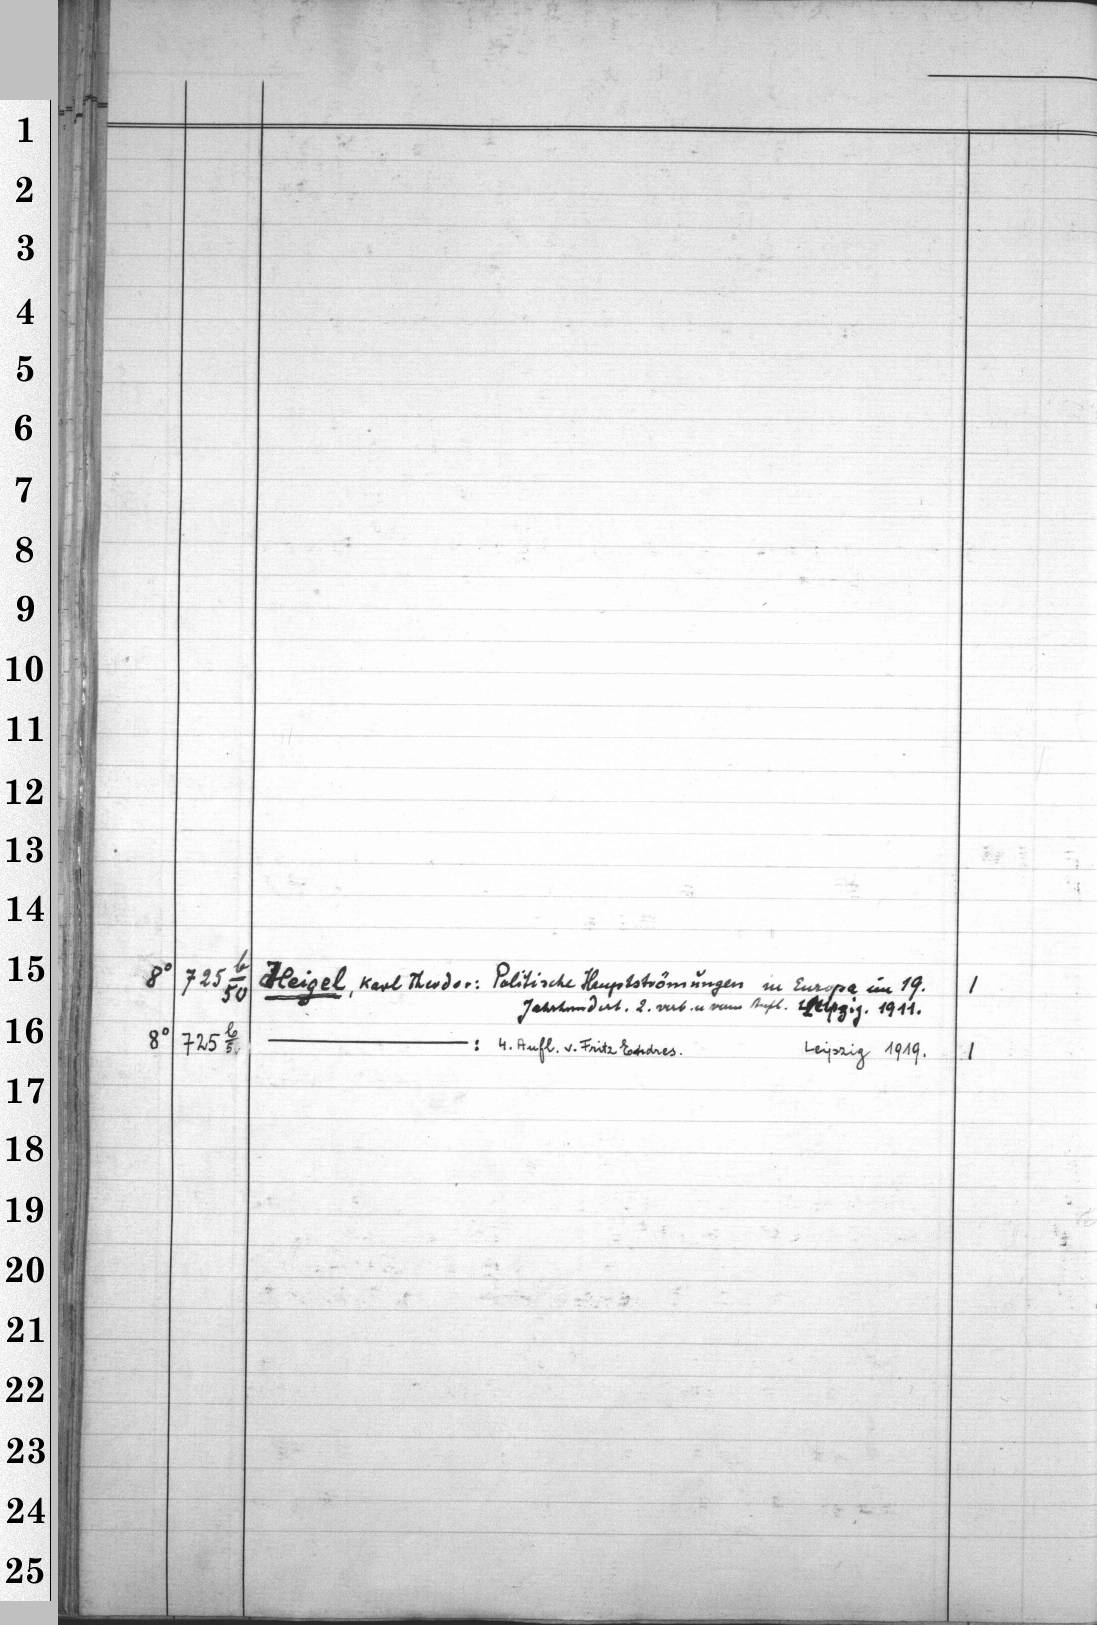 1
2
3
4
5
6
7
8
9
10
11
12
13
14
15
8° 725 b/50 Heigel, Karl Theodor: Politische Hauptströmungen in Europa im 19. 1
Jahrhundert. 2. verb. u Aufl. Leipzig. 1911.
16
8° 725 b/5 : 4. Aufl. v. Fritz Endres. Leipzig 1919. 1
17
18
19
20
21
22
23
24
25